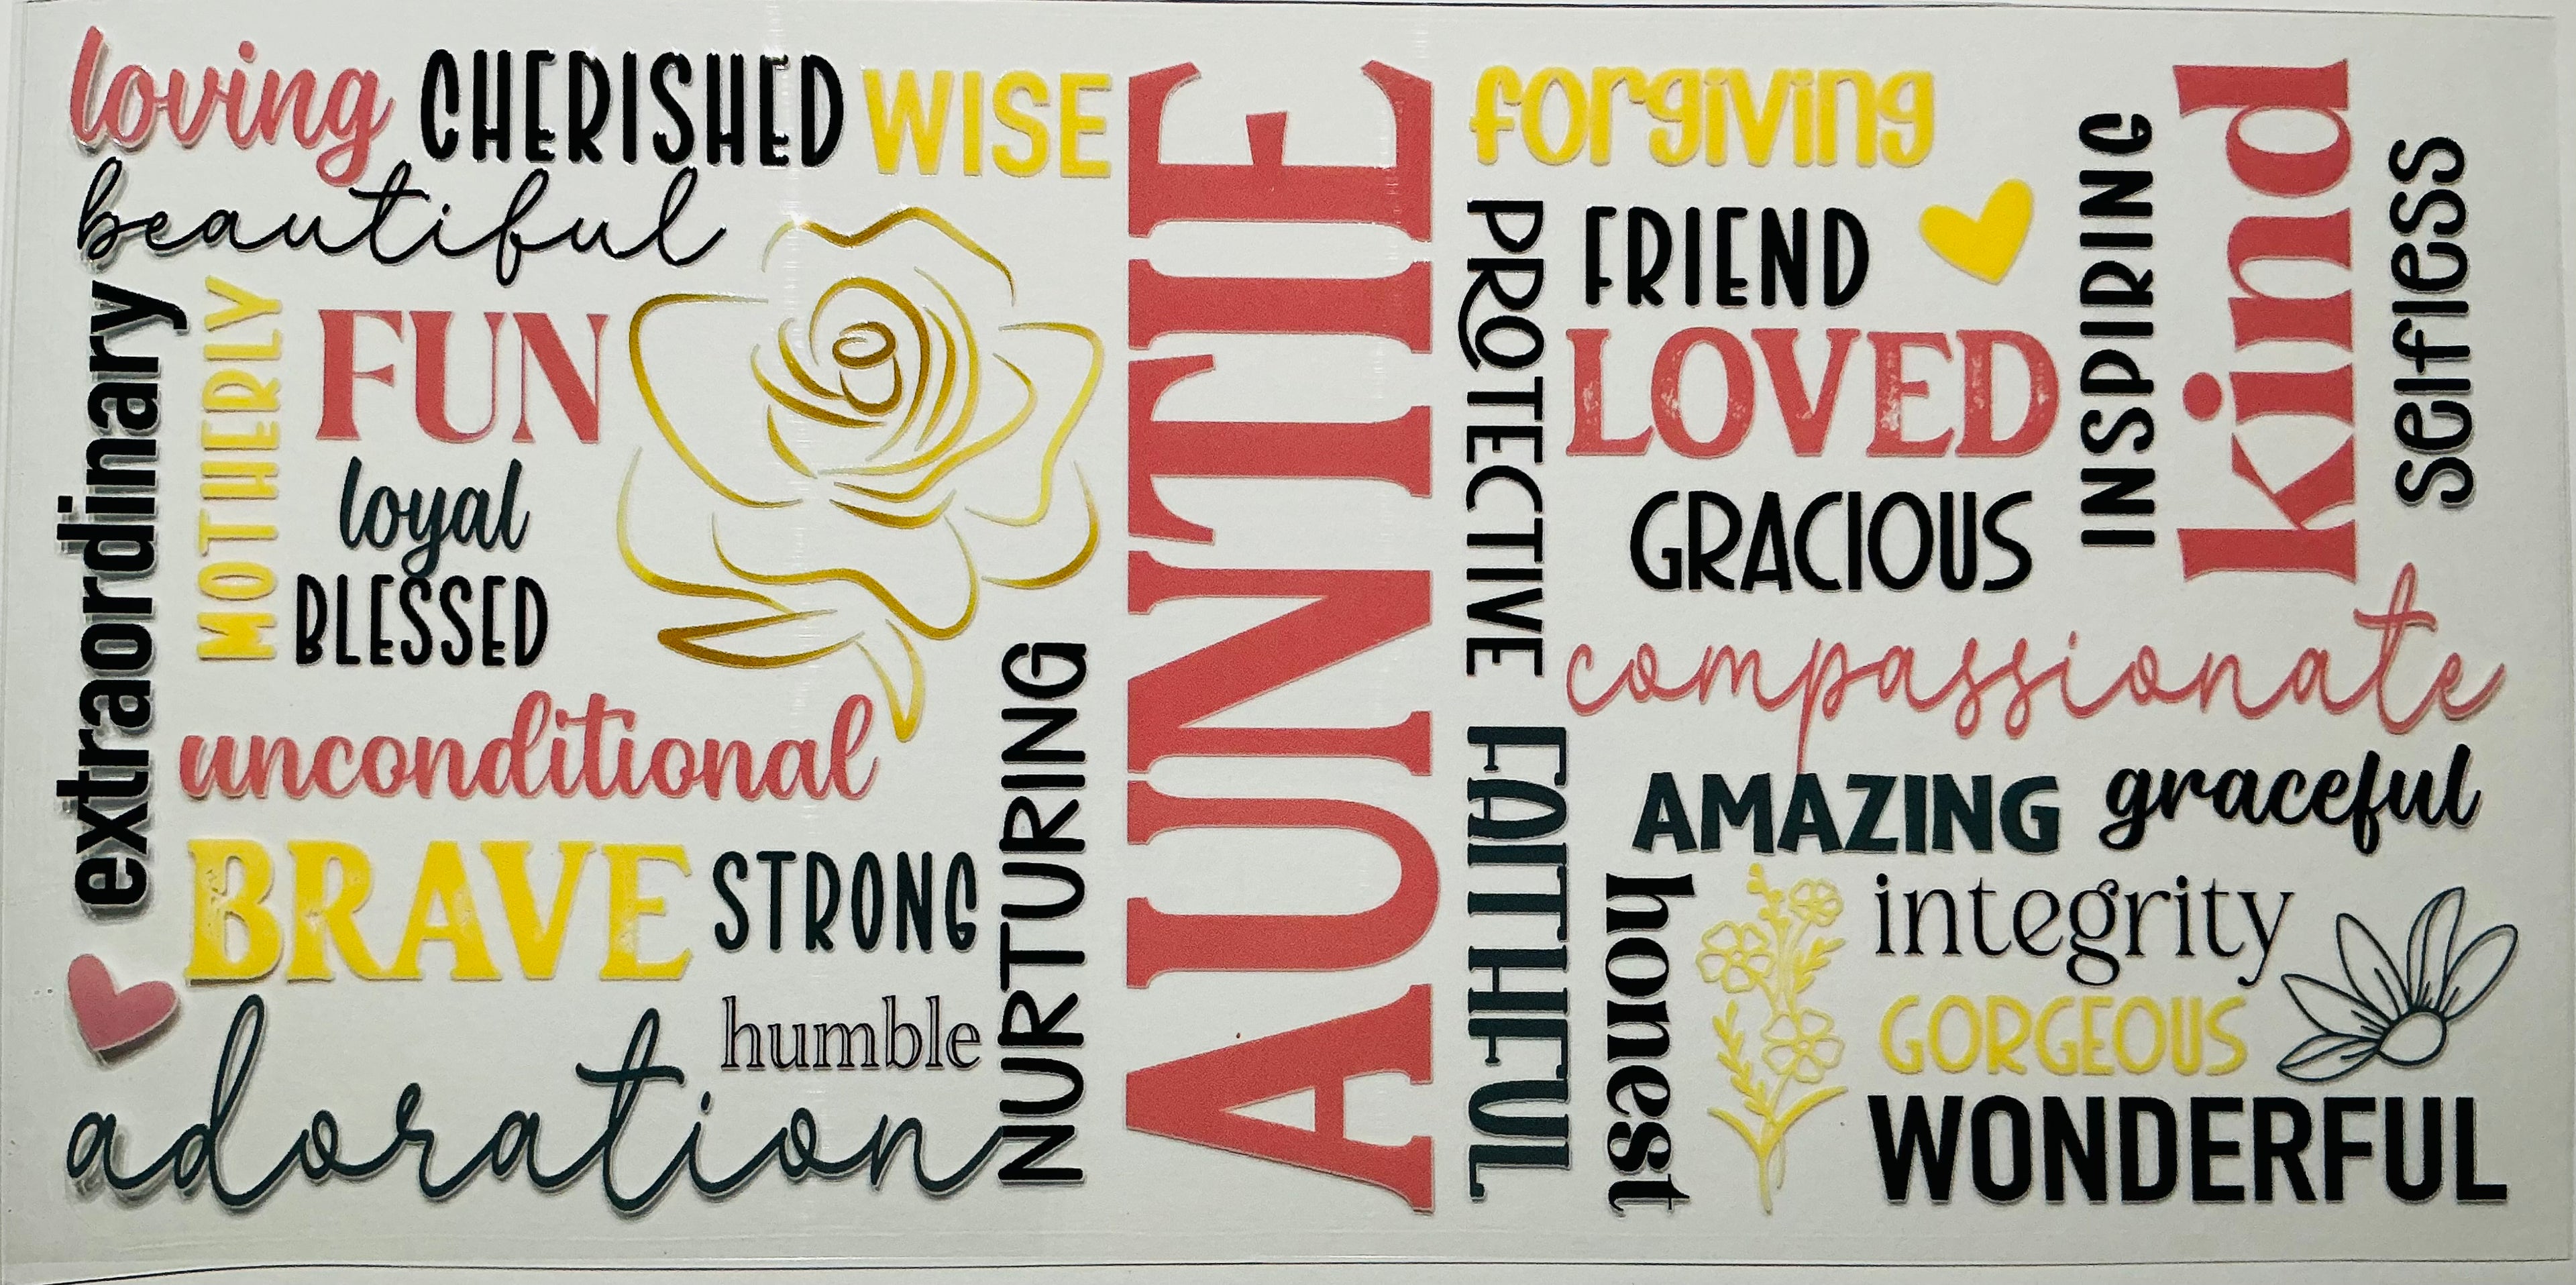 loving CHERISHED WISE
beautiful
extraordinary
MOTHERLY
FUN
loyal
BLESSED
unconditional
BRAVE STRONG
humble
adoration
NURTURING
AUNTIE
forgiving
PROTECTIVE
FRIEND
LOVED
GRACIOUS
INSPIRING
kind
selfless
compassionate
FAITHFUL
AMAZING graceful
honest
integrity
GORGEOUS
WONDERFUL